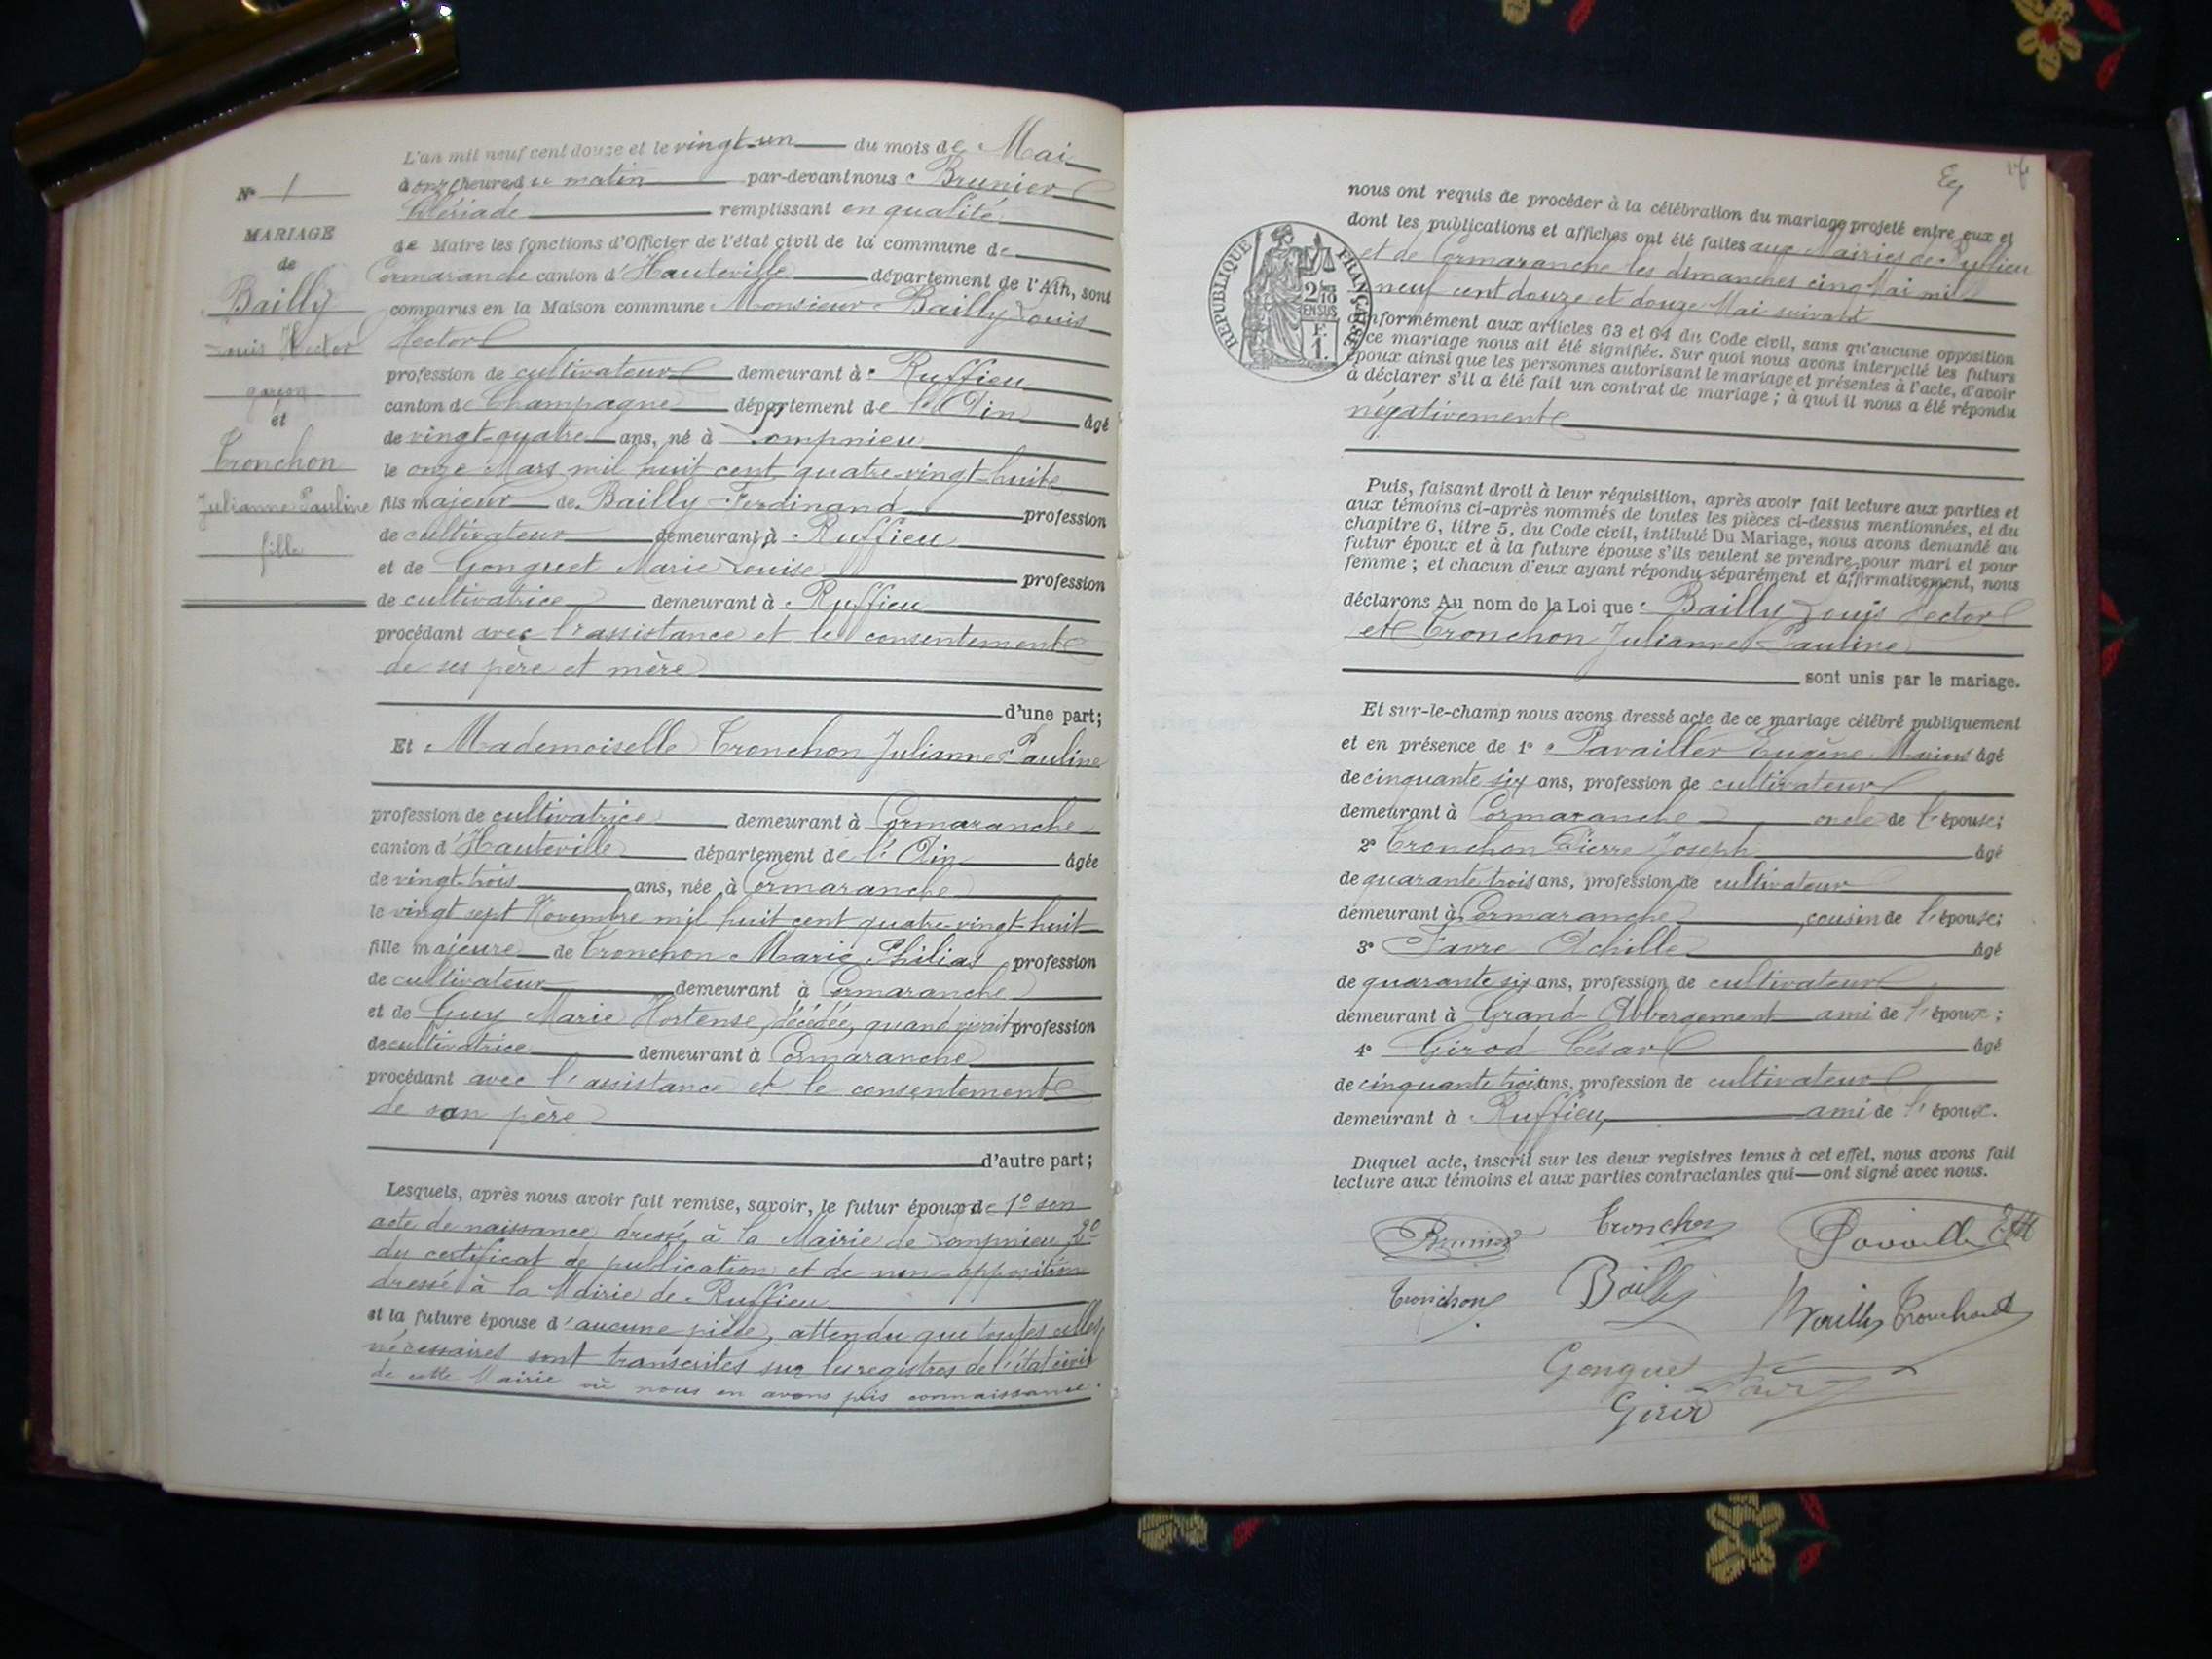 N° 1
MARIAGE
de
Bailly
Louis Hector
garçon
et
Tronchon
Julianne Pauline
fille
L'an mil neuf cent douze et le vingt-un du mois de Mai
à onze heures du matin par-devant nous Brunier
remplissant en qualité
de Maire les fonctions d'Officier de l'état civil de la commune de
Cormaranche canton d'Hauteville département de l'Ain, sont
comparus en la Maison commune Monsieur Bailly Louis
Hector
profession de cultivateur demeurant à Ruffieu
canton de Champagne département de l'Ain âgé
de vingt-quatre ans, né à Lompnieu
le onze Mars mil huit cent quatre-vingt-huit
fils majeur de Bailly Ferdinand profession
de cultivateur demeurant à Ruffieu
et de Gonguet Marie Louise profession
de cultivatrice demeurant à Ruffieu
procédant avec l'assistance et le consentement
de ses père et mère
d'une part;
Et Mademoiselle Tronchon Julianne Pauline
profession de cultivatrice demeurant à Cormaranche
canton d'Hauteville département de l'Ain âgée
de vingt-trois ans, née à Cormaranche
le vingt sept Novembre mil huit cent quatre-vingt-huit
fille majeure de Tronchon Marie Philias profession
de cultivateur demeurant à Cormaranche
et de Guy Marie Hortense, décédée, quand vivait profession
de cultivatrice demeurant à Cormaranche
procédant avec l'assistance et le consentement
de son père
d'autre part;
Lesquels, après nous avoir fait remise, savoir, le futur époux de 1° son
acte de naissance dressé à la Mairie de Lompnieu 2°
du certificat de publication et de non-opposition
dressé à la Mairie de Ruffieu
et la future épouse d'aucune pièce, attendu que toutes celles
nécessaires sont transcrites sur les registres de l'état civil
de cette Mairie où nous en avons pris connaissance.
17
nous ont requis de procéder à la célébration du mariage projeté entre eux et
dont les publications et affiches ont été faites aux Mairies de Ruffieu
et de Cormaranche les dimanches cinq Mai mil
neuf cent douze et douze Mai suivant
conformément aux articles 63 et 64 du Code civil, sans qu'aucune opposition
à ce mariage nous ait été signifiée. Sur quoi nous avons interpellé les futurs
époux ainsi que les personnes autorisant le mariage et présentes à l'acte, d'avoir
à déclarer s'il a été fait un contrat de mariage; à quoi il nous a été répondu
négativement
REPUBLIQUE FRANÇAISE
2/10
EN SUS
F.
1.
Puis, faisant droit à leur réquisition, après avoir fait lecture aux parties et
aux témoins ci-après nommés de toutes les pièces ci-dessus mentionnées, et du
chapitre 6, titre 5, du Code civil, intitulé Du Mariage, nous avons demandé au
futur époux et à la future épouse s'ils veulent se prendre pour mari et pour
femme; et chacun d'eux ayant répondu séparément et affirmativement, nous
déclarons Au nom de la Loi que Bailly Louis Hector
et Tronchon Julianne Pauline
sont unis par le mariage.
Et sur-le-champ nous avons dressé acte de ce mariage célébré publiquement
et en présence de 1° Pavailler Eugène Marius âgé
de cinquante six ans, profession de cultivateur
demeurant à Cormaranche oncle de l'épouse;
2° Tronchon Pierre Joseph âgé
de quarante trois ans, profession de cultivateur
demeurant à Cormaranche, cousin de l'épouse;
3° Favre Achille âgé
de quarante six ans, profession de cultivateur
demeurant à Grand Abbergement ami de l'époux;
4° Girod César âgé
de cinquante trois ans, profession de cultivateur
demeurant à Ruffieu, ami de l'époux.
Duquel acte, inscrit sur les deux registres tenus à cet effet, nous avons fait
lecture aux témoins et aux parties contractantes qui ont signé avec nous.
Brunier Tronchon
Tronchon Bailly Bailly Tronchon
Gonguet Favre
Girod